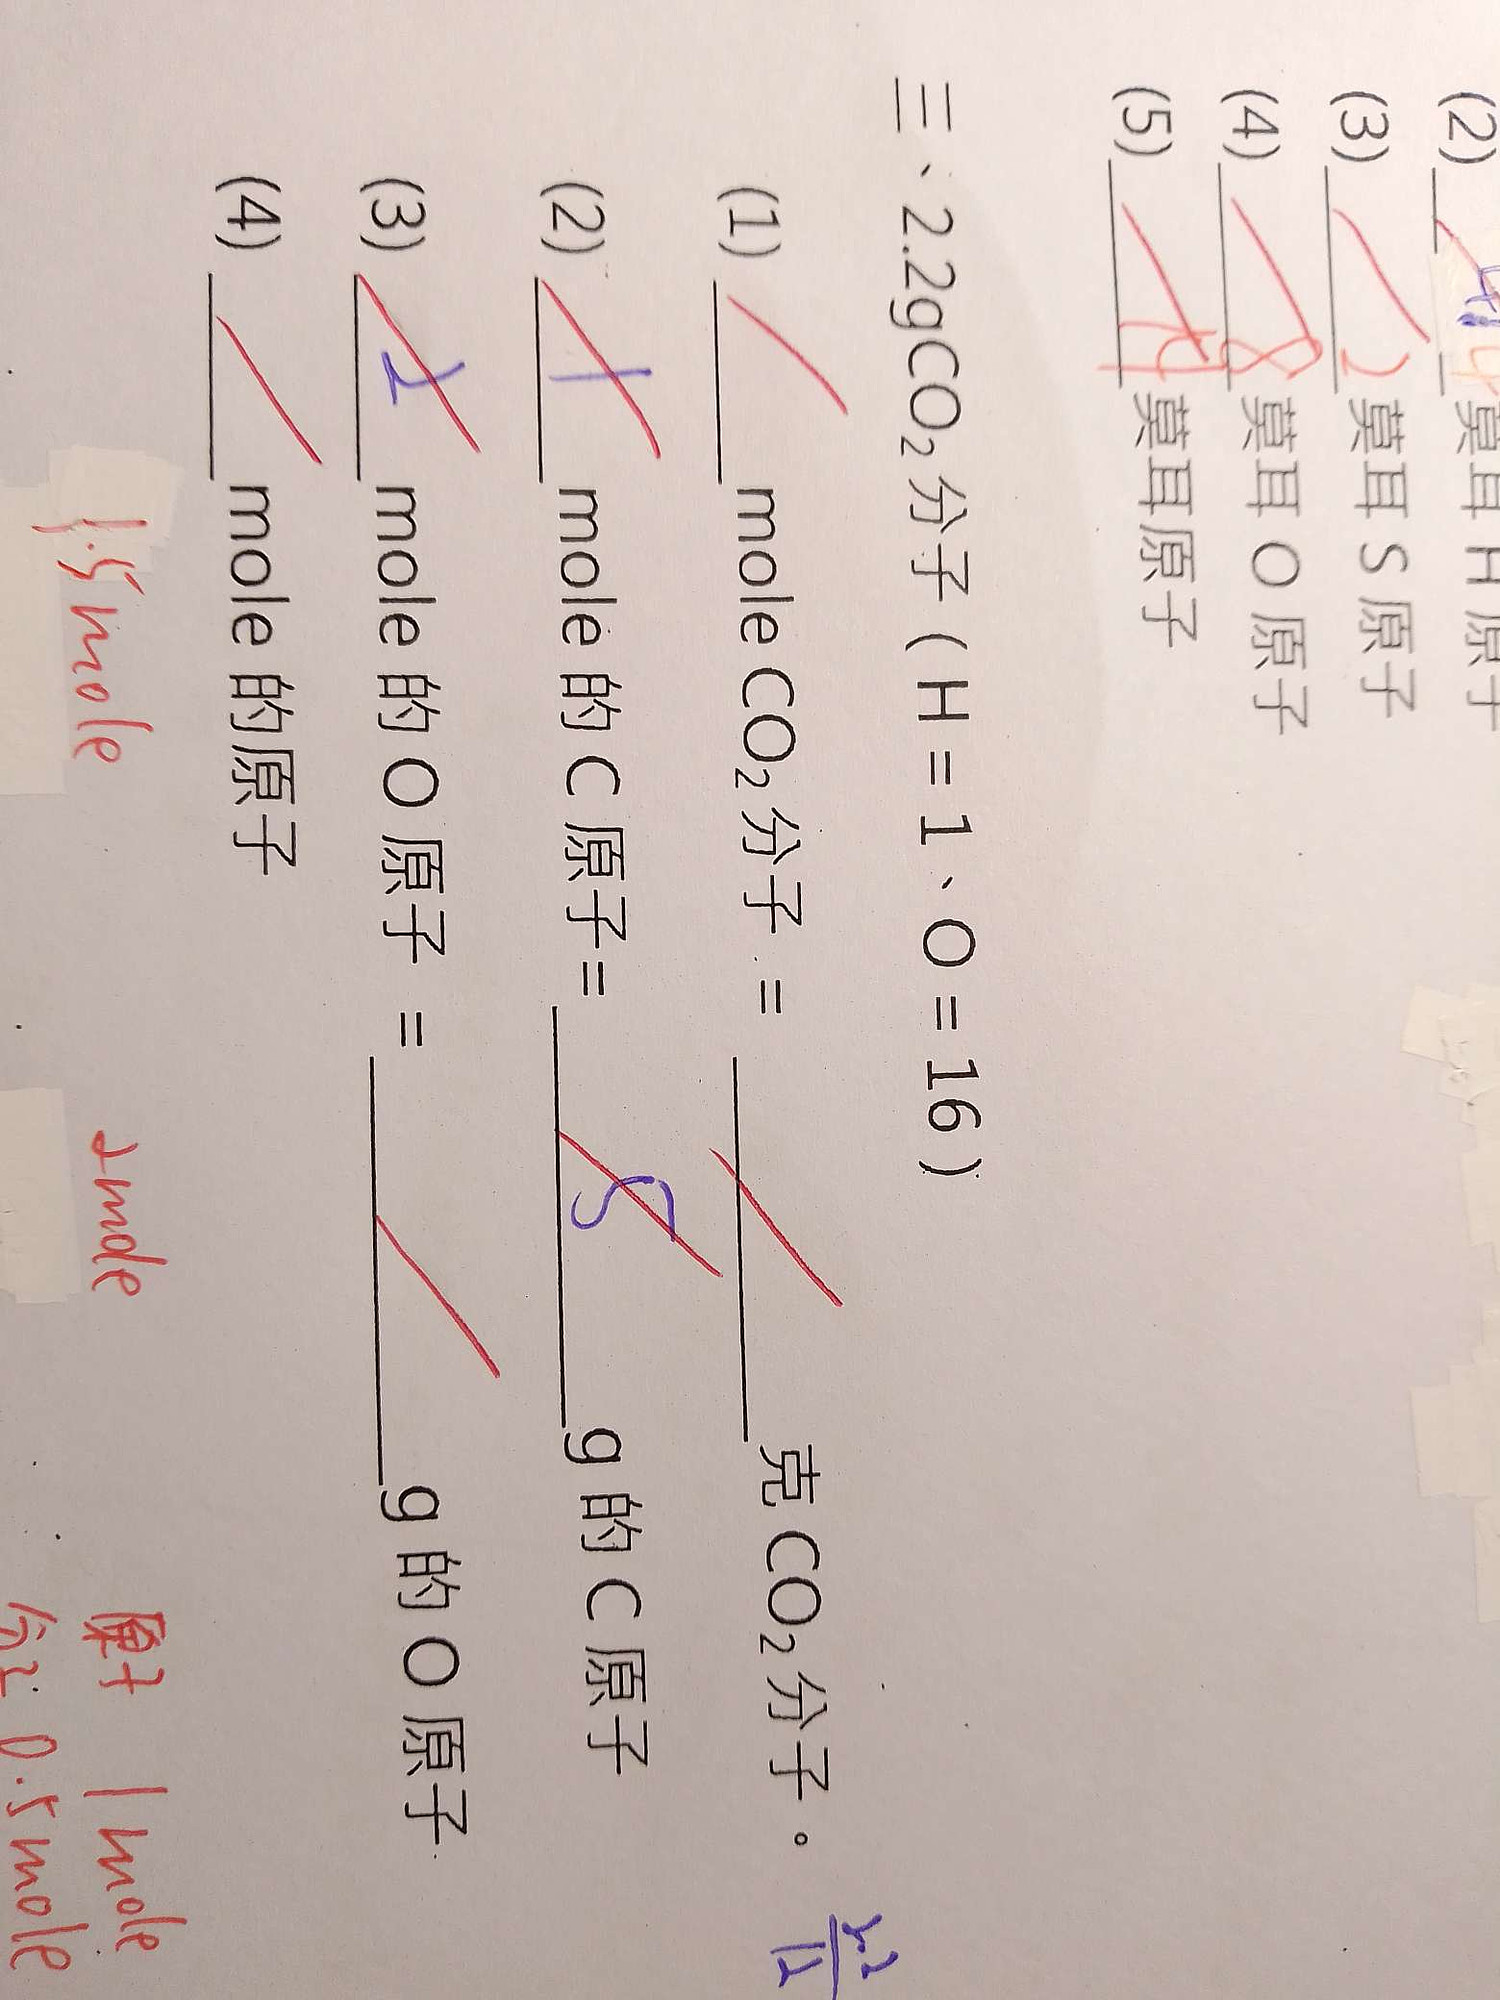 (2) 4 莫耳 H 原子
(3) 2 莫耳 S 原子
(4) 8 莫耳 O 原子
(5) 14 莫耳原子
三、2.2gCO₂分子(H=1、O=16)
(1) ______ mole CO₂分子 = ______ 克 CO₂分子。
2.2
12
(2) 1 mole 的 C 原子= 5 g 的 C 原子
(3) 2 mole 的 O 原子 = ______ g 的 O 原子
(4) ______ mole 的原子
1.5 mole
2 mole
原子 1 mole
分子: 0.5 mole